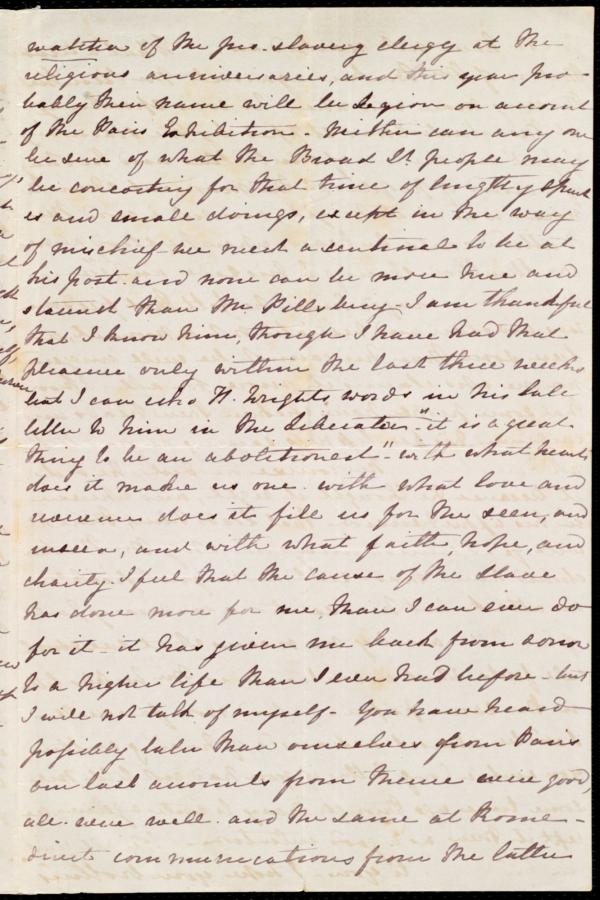 watcher of the pro-slavery clergy at the
religious anniversaries, and this year pro-
bably their name will be Legion on account
of the Paris Exhibition - Neither can any one
be sure of what the Broad St. people may
be concocting for that time of lengthy speech
es and small doings, except in the way
of mischief - we need a sentinel to be at
his post. and none can be more true and
staunch than Mr Pillsbury - I am thankful
that I know him, though I have had that
pleasure only within the last three weeks
but I can echo H. Wright's words in his late
letter to him in the Liberator - "it is a great
thing to be an abolitionist" - with what hearts
does it make us one. with what love and
reverence does it fill us for the seen, and
unseen, and with what faith, hope, and
charity. I feel that the cause of the slave
has done more for me, than I can ever do
for it - it has given me back from sorrow
to a higher life than I ever had before - but
I will not talk of myself - You have heard
possibly later than ourselves from Paris
our last accounts from thence were good,
all were well. and the same at Rome -
direct communications from the latter